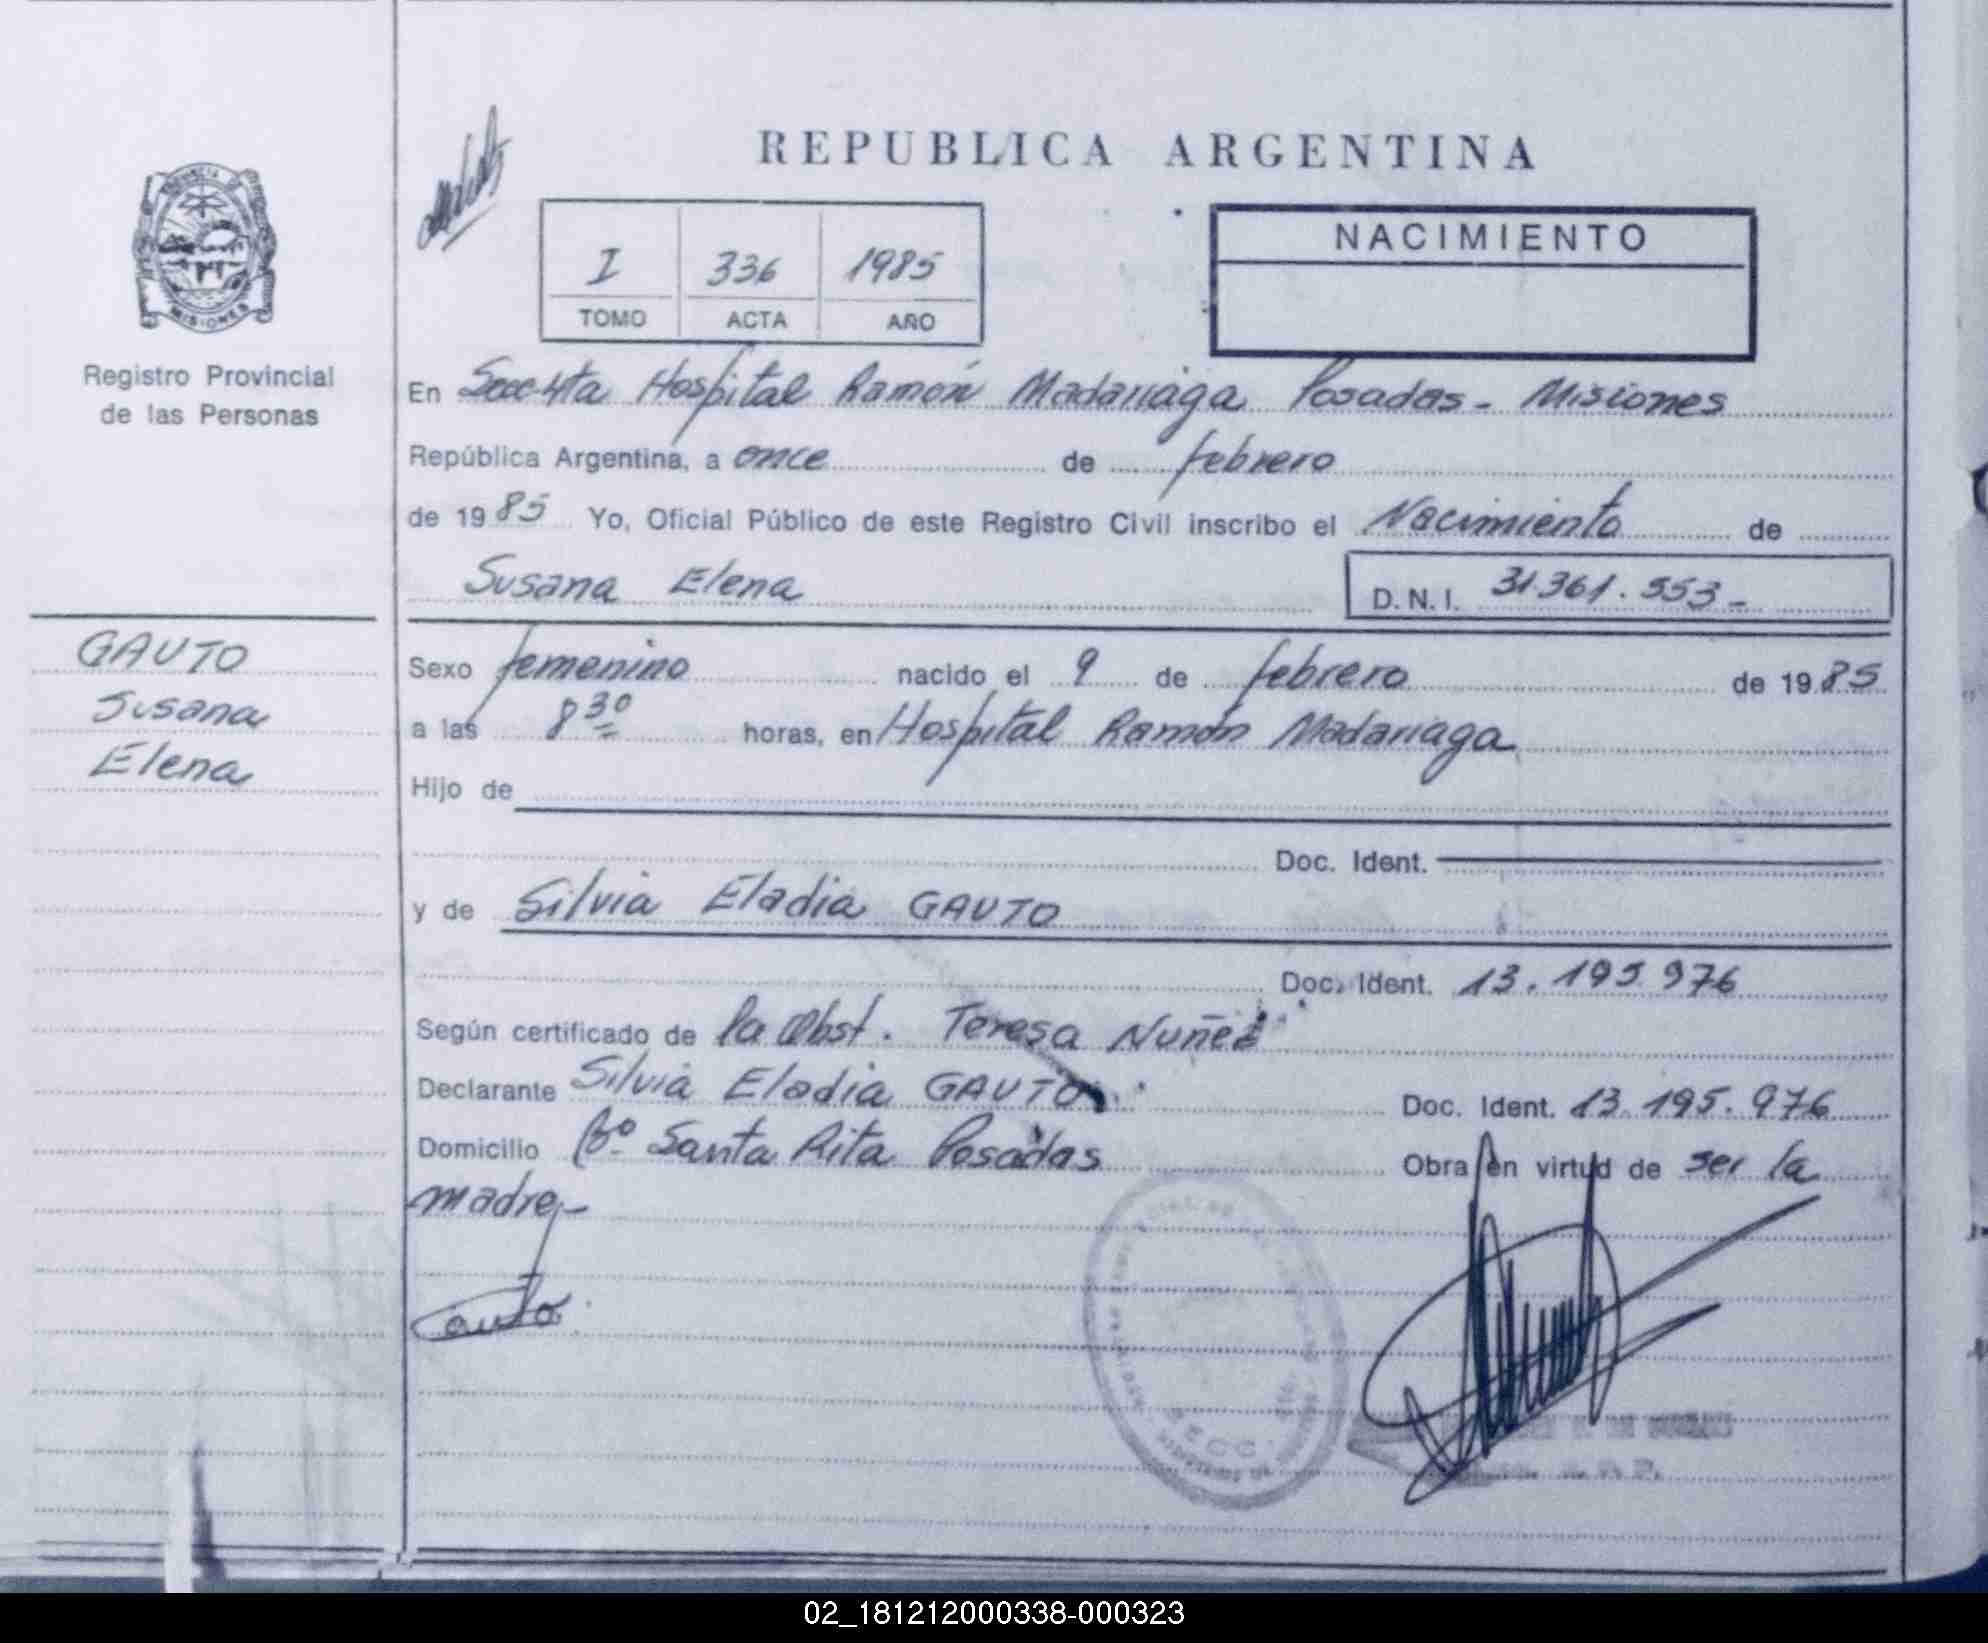 REPUBLICA ARGENTINA
PROVINCIA DE
MISIONES
Registro Provincial
de las Personas
I 336 1985
TOMO ACTA AÑO
NACIMIENTO
En Secc 4ta Hospital Ramón Madariaga Posadas - Misiones
República Argentina, a once de febrero
de 1985 Yo, Oficial Público de este Registro Civil inscribo el Nacimiento de
Susana Elena D.N.I. 31.361.553-
GAUTO
Susana
Elena
Sexo femenino nacido el 9 de febrero de 1985
a las 8 30 horas, en Hospital Ramón Madariaga
Hijo de
Doc. Ident.
y de Silvia Eladia GAUTO
Doc. Ident. 13.195.976
Según certificado de la Obst. Teresa Nuñez
Declarante Silvia Eladia GAUTO Doc. Ident. 13.195.976
Domicilio Bº Santa Rita Posadas Obra en virtud de ser la
madre,-
Gauto
02_181212000338-000323